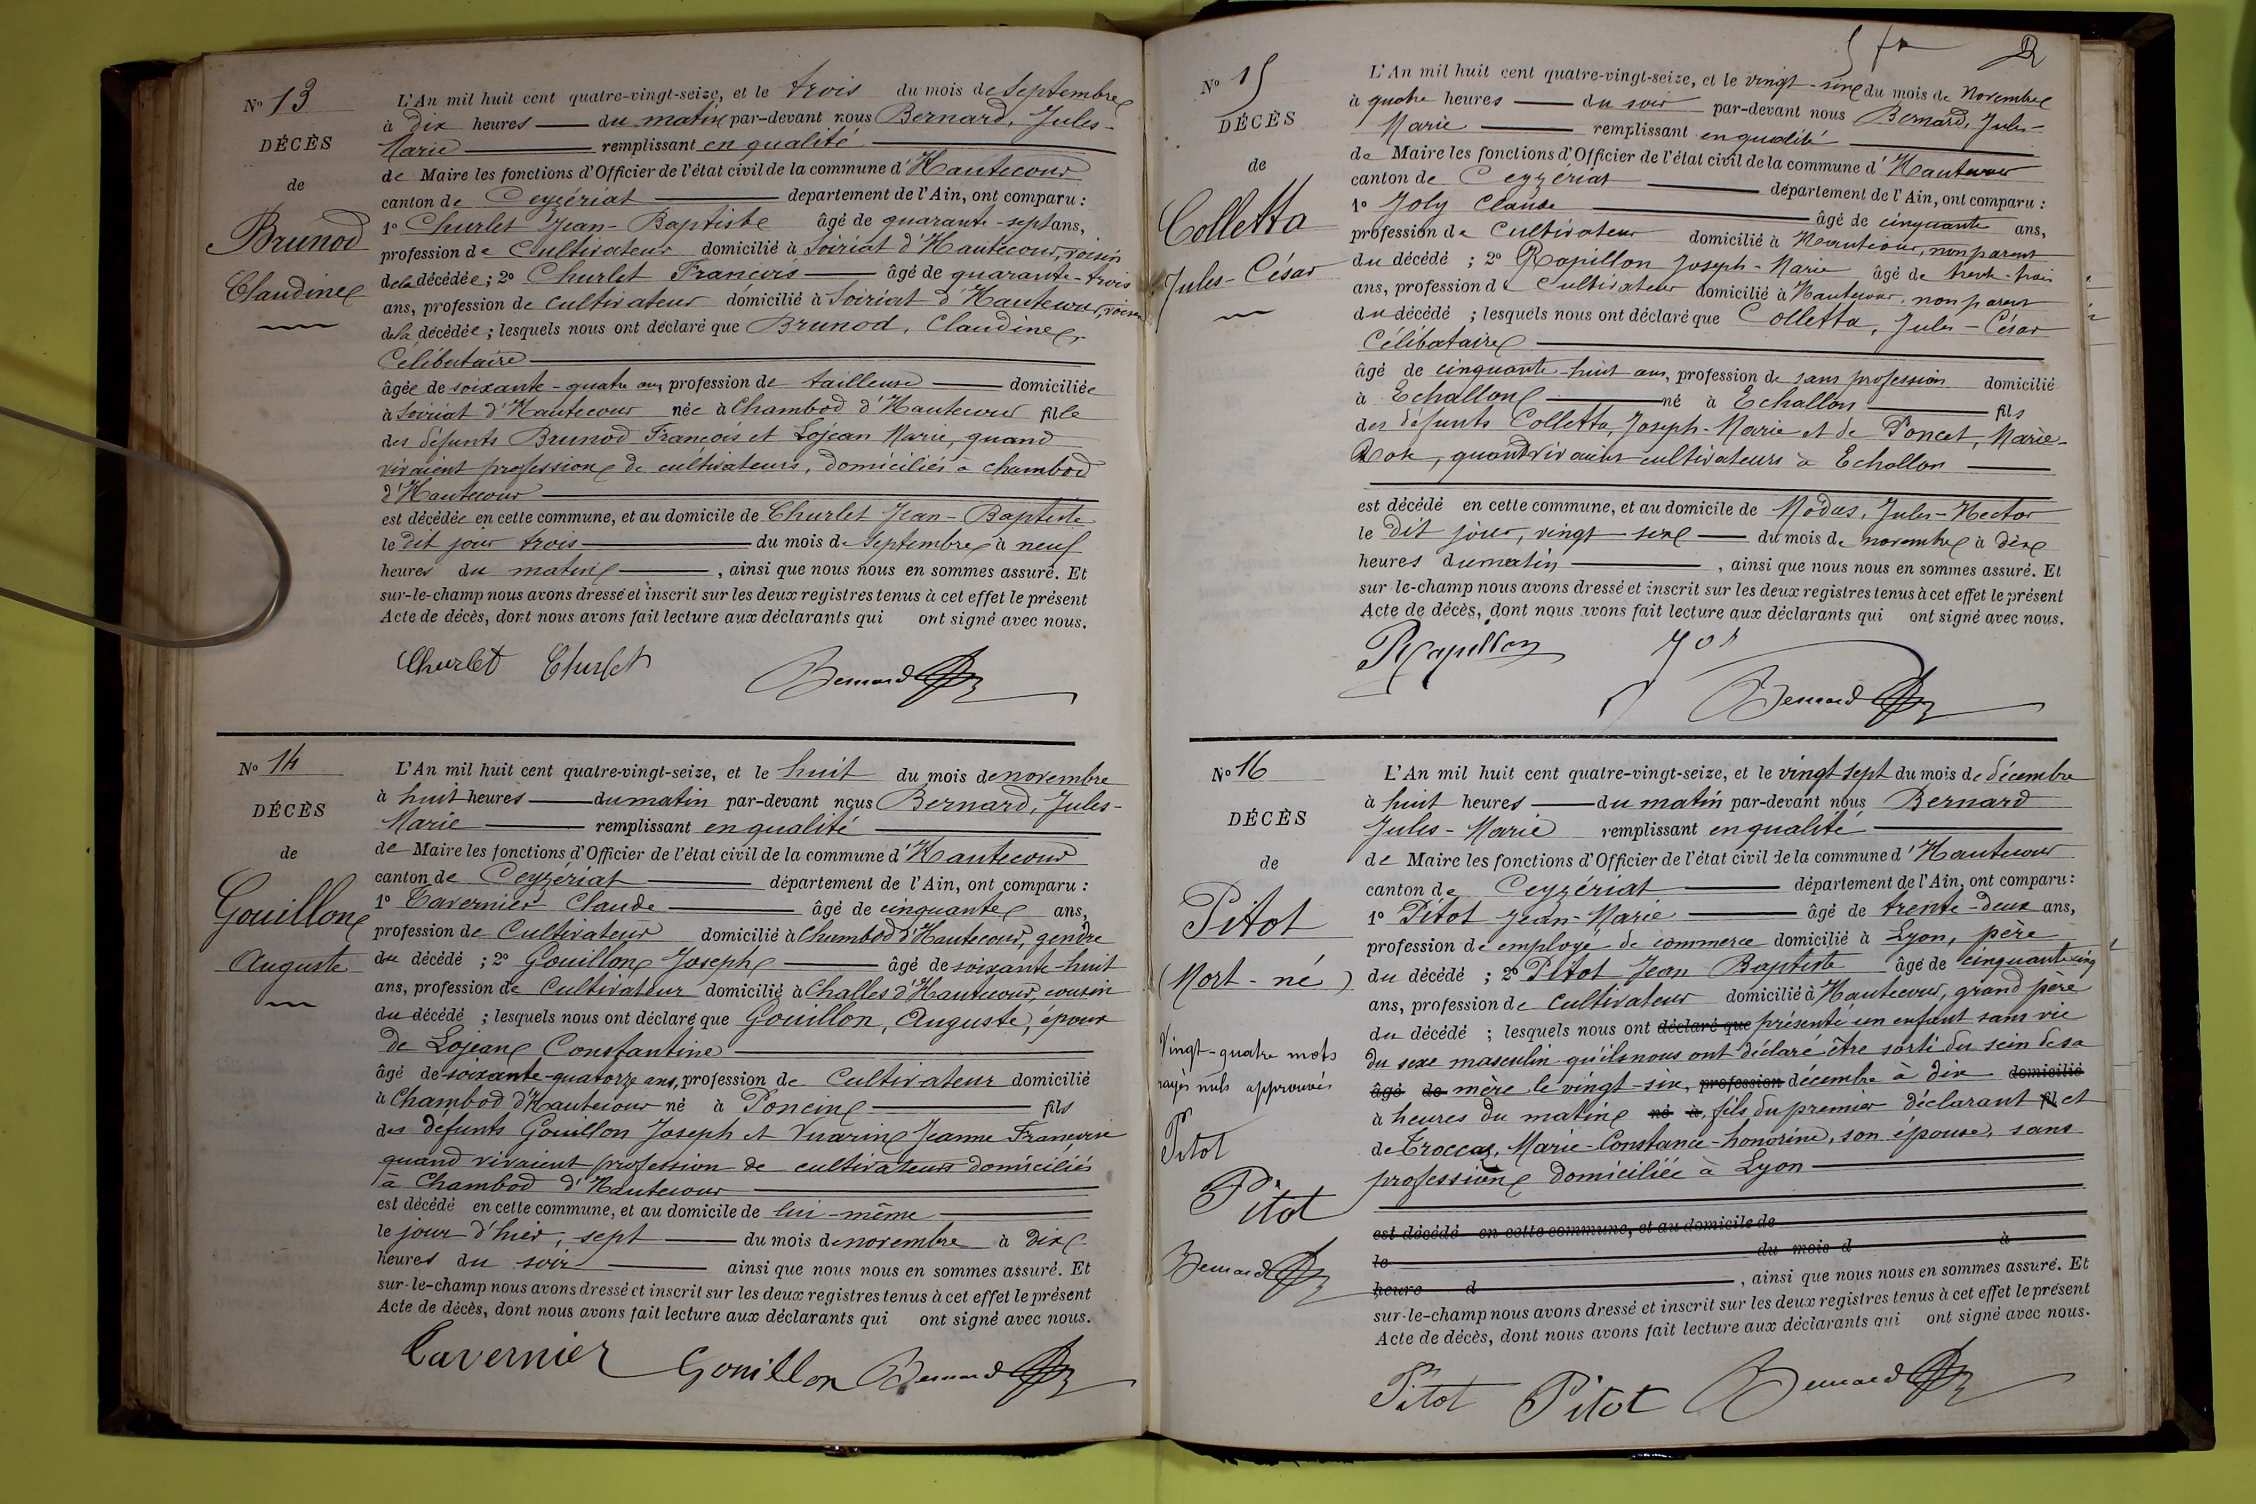 N° 13
DÉCÈS
de
Brunod
Claudine
L'An mil huit cent quatre-vingt-seize, et le trois du mois de Septembre
à dix heures du matin par-devant nous Bernard, Jules-
Marie remplissant en qualité
de Maire les fonctions d'Officier de l'état civil de la commune d'Hautecour
canton de Ceyzériat département de l'Ain, ont comparu :
1° Churlet Jean-Baptiste âgé de quarante-sept ans,
profession de Cultivateur domicilié à Soiriat d'Hautecour, voisin
de la décédée ; 2° Churlet Francois âgé de quarante-trois
ans, profession de cultivateur domicilié à Soiriat d'Hautecour, voisin
de la décédée ; lesquels nous ont déclaré que Brunod, Claudine,
Célibataire
âgée de soixante-quatre ans, profession de tailleuse domiciliée
à Soiriat d'Hautecour née à Chambod d'Hautecour fille
des défunts Brunod Francois et Lojean Marie, quand
vivaient profession de cultivateurs, domiciliés à chambod
d'Hautecour
est décédée en cette commune, et au domicile de Churlet Jean-Baptiste
le dit jour trois du mois de Septembre à neuf
heures du matin , ainsi que nous nous en sommes assuré. Et
sur-le-champ nous avons dressé et inscrit sur les deux registres tenus à cet effet le présent
Acte de décès, dont nous avons fait lecture aux déclarants qui ont signé avec nous.
Churlet Churlet Bernard
N° 14
DÉCÈS
de
Gouillon
Auguste
L'An mil huit cent quatre-vingt-seize, et le huit du mois de novembre
à huit heures du matin par-devant nous Bernard, Jules-
Marie remplissant en qualité
de Maire les fonctions d'Officier de l'état civil de la commune d'Hautecour
canton de Ceyzériat département de l'Ain, ont comparu :
1° Tavernier Claude âgé de cinquante ans,
profession de Cultivateur domicilié à Chambod d'Hautecour, gendre
du décédé ; 2° Gouillon Joseph âgé de soixante-huit
ans, profession de Cultivateur domicilié à Challes d'Hautecour, cousin
du décédé ; lesquels nous ont déclaré que Gouillon, Auguste, époux
de Lojean Constantine
âgé de soixante-quatorze ans, profession de Cultivateur domicilié
à Chambod d'Hautecour né à Poncin fils
des défunts Gouillon Joseph et Vuarin Jeanne Francoise
quand vivaient profession de cultivateurs domiciliés
à Chambod d'Hautecour
est décédé en cette commune, et au domicile de lui-même
le jour d'hier, sept du mois de novembre à dix
heures du soir ainsi que nous nous en sommes assuré. Et
sur-le-champ nous avons dressé et inscrit sur les deux registres tenus à cet effet le présent
Acte de décès, dont nous avons fait lecture aux déclarants qui ont signé avec nous.
Tavernier Gouillon Bernard
N° 15
DÉCÈS
de
Colletta
Jules-César
L'An mil huit cent quatre-vingt-seize, et le vingt-six du mois de Novembre
à quatre heures du soir par-devant nous Bernard, Jules-
Marie remplissant en qualité
de Maire les fonctions d'Officier de l'état civil de la commune d'Hautecour
canton de Ceyzériat département de l'Ain, ont comparu :
1° Joly Claude âgé de cinquante ans,
profession de Cultivateur domicilié à Hautecour, non parent
du décédé ; 2° Rapillon Joseph-Marie âgé de trente-trois
ans, profession de Cultivateur domicilié à Hautecour, non parent
du décédé ; lesquels nous ont déclaré que Colletta, Jules-César
Célibataire
âgé de cinquante-huit ans, profession de sans profession domicilié
à Echallon né à Echallon fils
des défunts Colletta, Joseph-Marie et de Poncet, Marie-
quand vivaient cultivateurs à Echallon
est décédé en cette commune, et au domicile de Modas, Jules-Hector
le dit jour, vingt-six du mois de novembre à dix
heures du matin , ainsi que nous nous en sommes assuré. Et
sur-le-champ nous avons dressé et inscrit sur les deux registres tenus à cet effet le présent
Acte de décès, dont nous avons fait lecture aux déclarants qui ont signé avec nous.
Rapillon
Bernard
N° 16
DÉCÈS
de
Pitot
(Mort-né)
Vingt-quatre mots
rayés nuls approuvés
Pitot
Pitot
Bernard
L'An mil huit cent quatre-vingt-seize, et le vingt sept du mois de décembre
à huit heures du matin par-devant nous Bernard
Jules-Marie remplissant en qualité
de Maire les fonctions d'Officier de l'état civil de la commune d'Hautecour
canton de Ceyzériat département de l'Ain, ont comparu :
1° Pitot Jean-Marie âgé de trente-deux ans,
profession de employé de commerce domicilié à Lyon, père
du décédé ; 2° Pitot Jean Baptiste âgé de cinquante cinq
ans, profession de cultivateur domicilié à Hautecour, grand père
du décédé ; lesquels nous ont déclaré que présenté un enfant sans vie
du sexe masculin qu'ils nous ont déclaré être sorti du sein de sa
âgé de mère le vingt-six, profession décembre à dix domicilié
à heures du matin né à, fils du premier déclarant fil et
de Troccaz, Marie-Constance-honorine, son épouse, sans
profession domiciliée à Lyon
est décédé en cette commune, et au domicile de
le du mois d à
heure d , ainsi que nous nous en sommes assuré. Et
sur-le-champ nous avons dressé et inscrit sur les deux registres tenus à cet effet le présent
Acte de décès, dont nous avons fait lecture aux déclarants qui ont signé avec nous.
Pitot Pitot Bernard